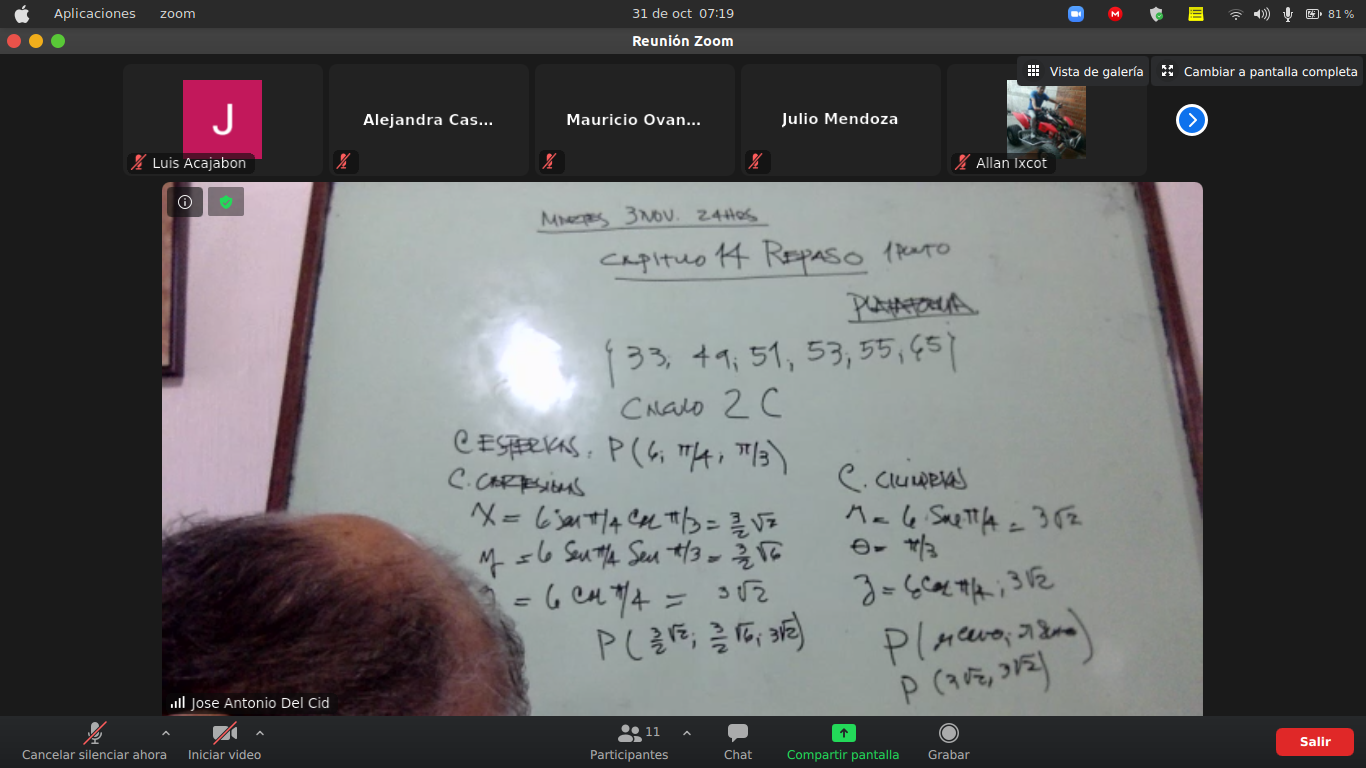 Aplicaciones zoom 31 de oct 07:19 81 %
Reunión Zoom
Vista de galería Cambiar a pantalla completa
J Alejandra Cas... Mauricio Ovan... Julio Mendoza
Luis Acajabon Allan Ixcot
MARTES 3 NOV. 24 HRS
CAPITULO 14 REPASO 1 PUNTO
PLATAFORMA
{ 33, 49, 51, 53, 55, 65 }
CALCULO 2 C
C. ESFERICAS. P(6, π/4, π/3)
C. CARTESIANAS C. CILINDRICAS
X = 6 sen π/4 cos π/3 = 3/2 √2 r = 6 Sen π/4 = 3√2
y = 6 Sen π/4 Sen π/3 = 3/2 √6 θ = π/3
= 6 Cos π/4 = 3√2 z = 6 Cos π/4, 3√2
P(3/2 √2, 3/2 √6, 3√2) P(
P (3√2, 3√2)
Jose Antonio Del Cid
Cancelar silenciar ahora Iniciar video Participantes 11 Chat Compartir pantalla Grabar Salir